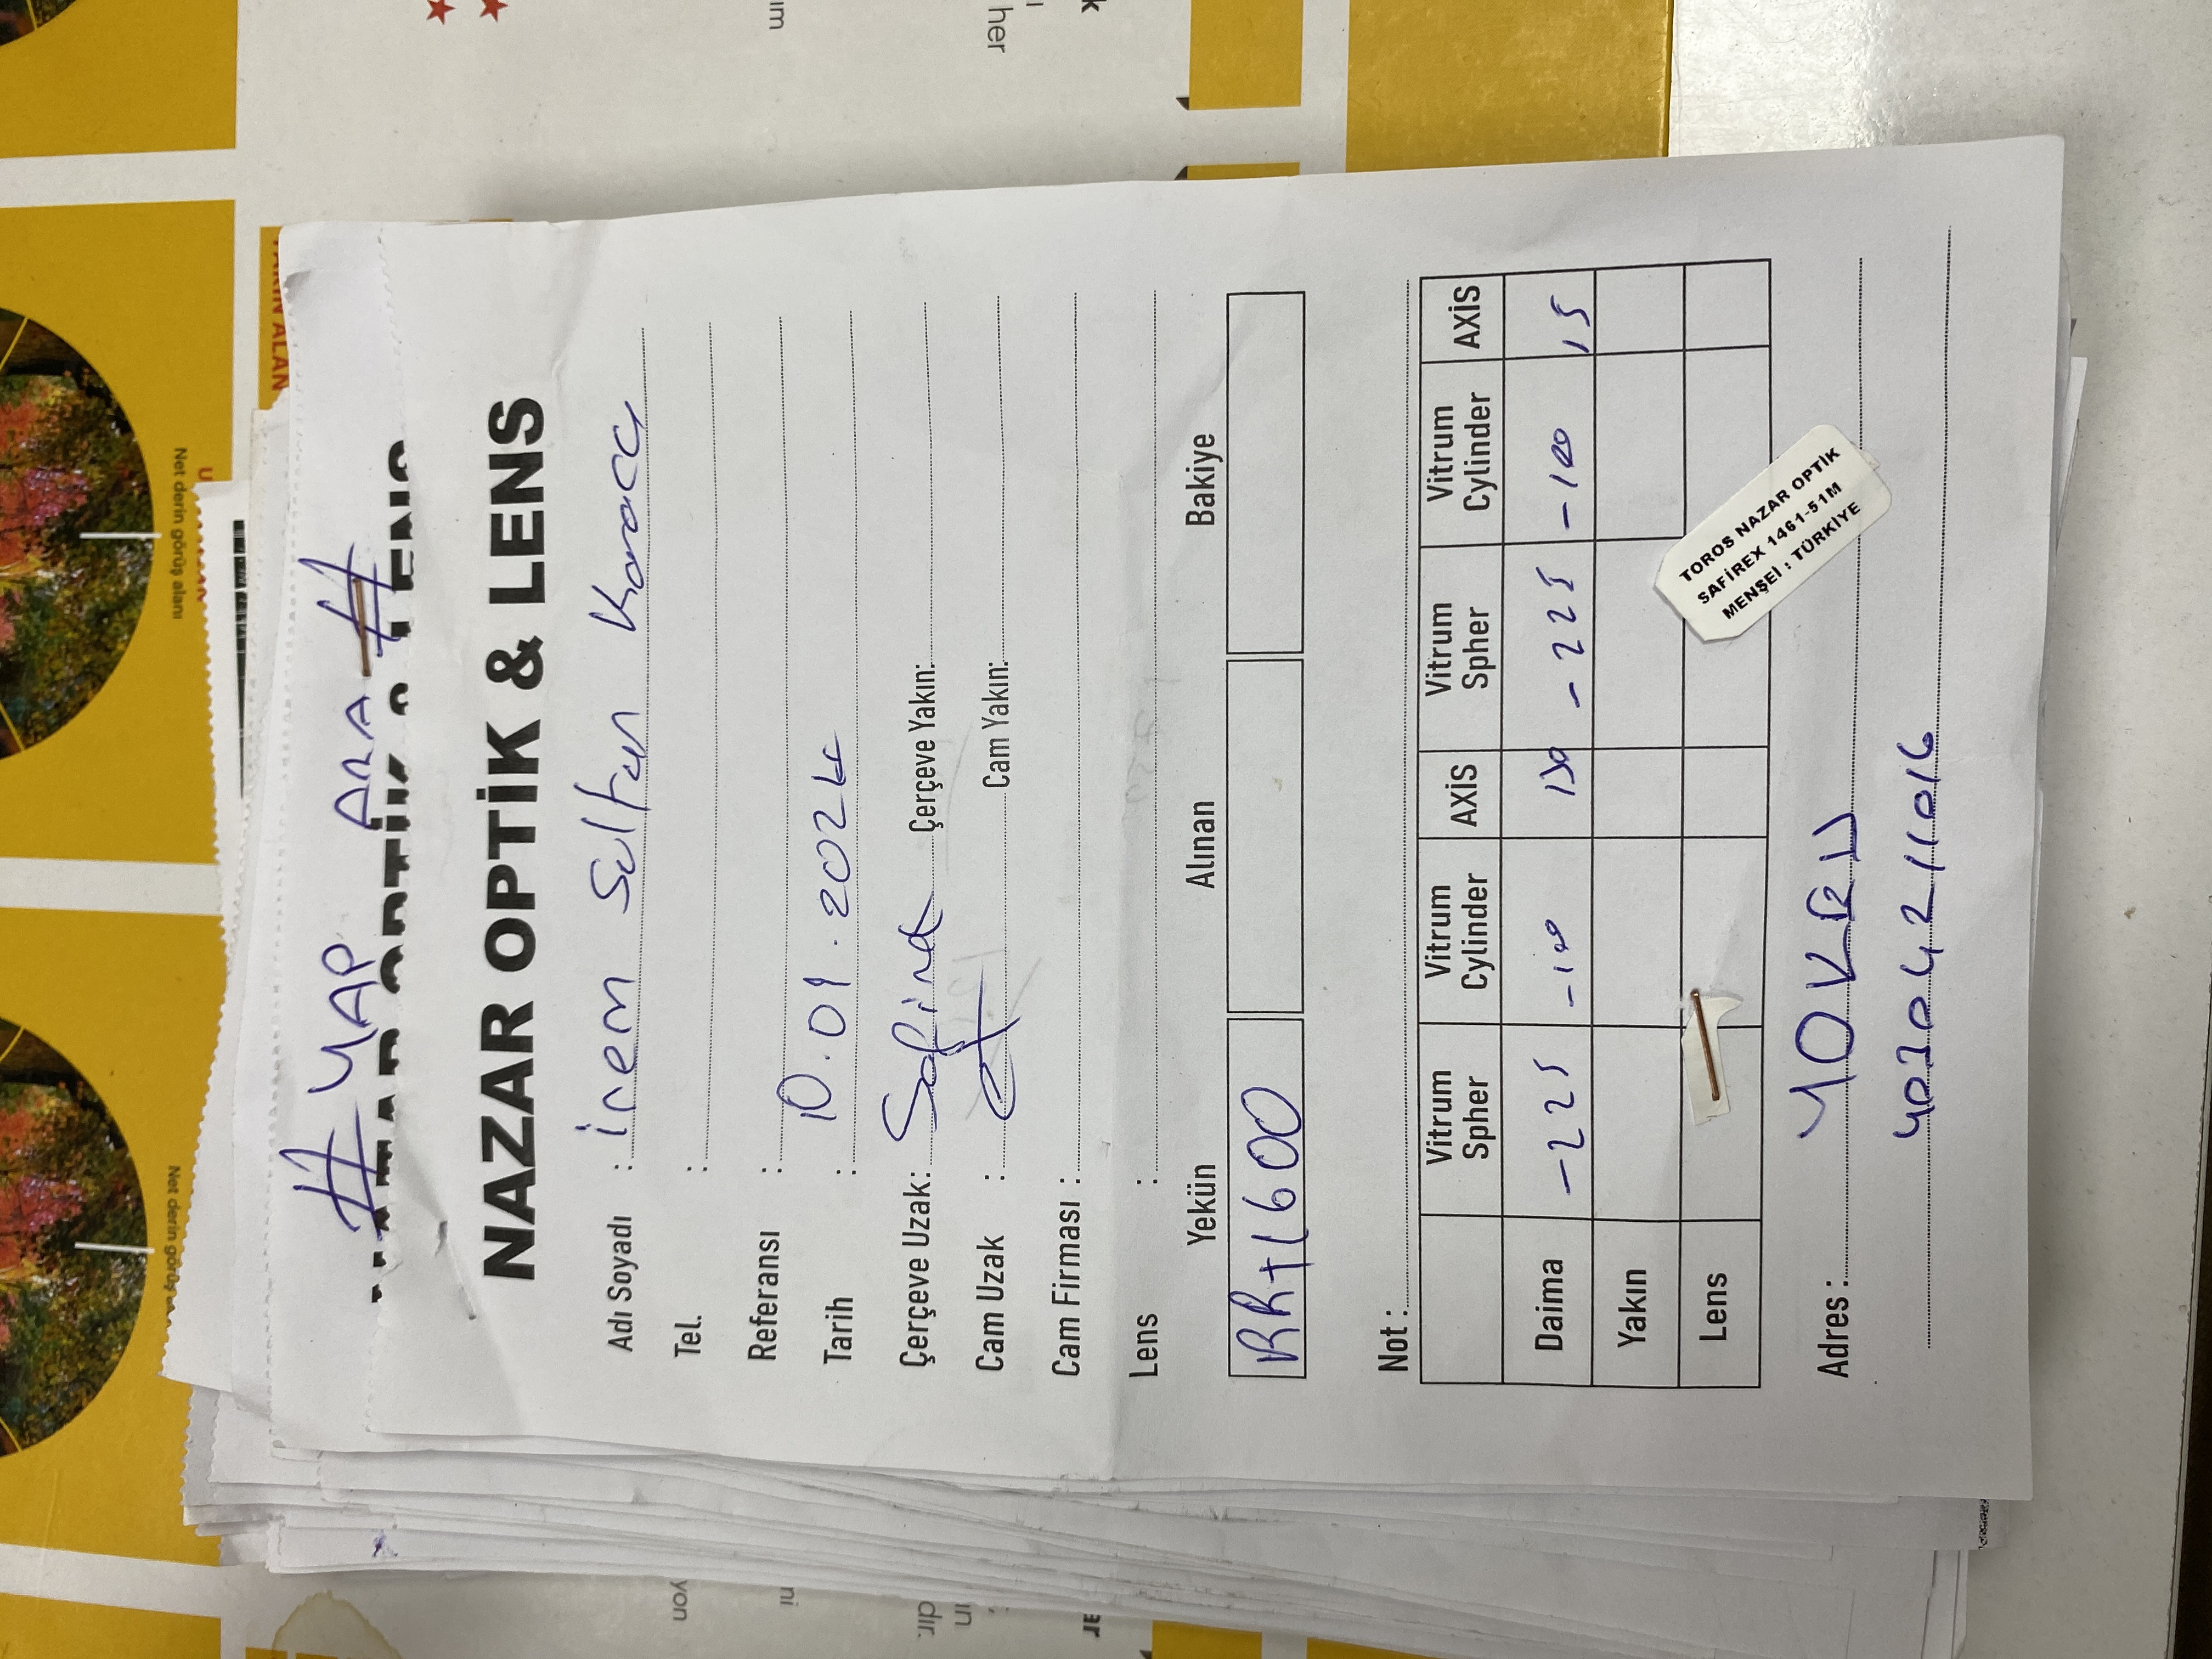 Net derin görüş alanı
# YAP ARA #
NAZAR OPTİK & LENS
Adı Soyadı : İrem Sultan Karaca
Tel. :
Referansı :
Tarih : 10.01.2024
Çerçeve Uzak: Safirex Çerçeve Yakın:
Cam Uzak : Cam Yakın:
Cam Firması :
Lens :
Yekün Alınan Bakiye
RR+1600
Not :
Vitrum Spher Vitrum Cylinder AXİS Vitrum Spher Vitrum Cylinder AXİS
Daima -225 -100 -225 -100 15
Yakın
Lens
TOROS NAZAR OPTİK
SAFİREX 1461-51M
MENŞEİ : TÜRKİYE
Adres :